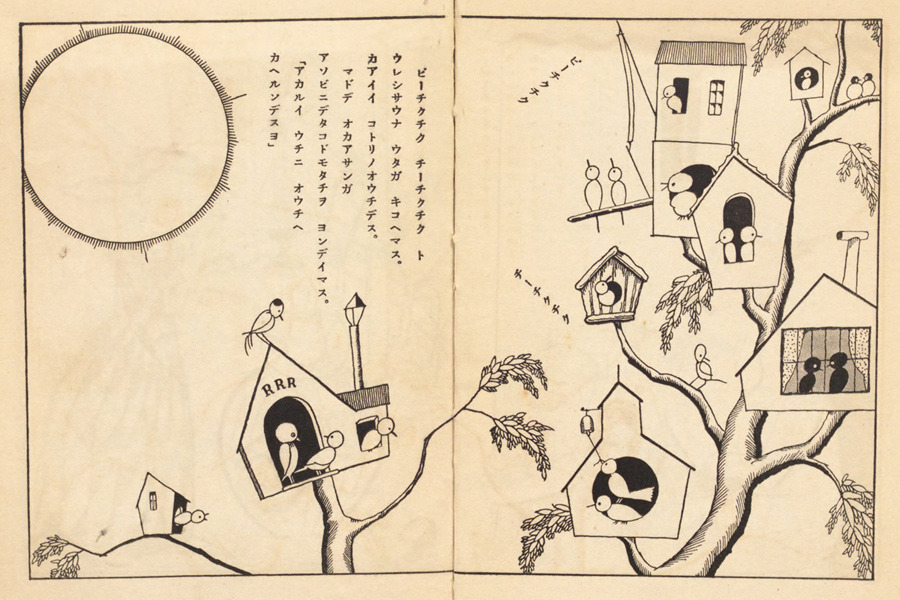 ピーチクチク チーチクチク ト
ウレシサウナ ウタガ キコヘマス。
カアイイ コトリノオウチデス。
マドデ オカアサンガ
アソビニデタコドモタチヲ ヨンデイマス。
「アカルイ ウチニ オウチヘ
カヘルンデスヨ」
ピーチクチク
チーチクチク
RRR